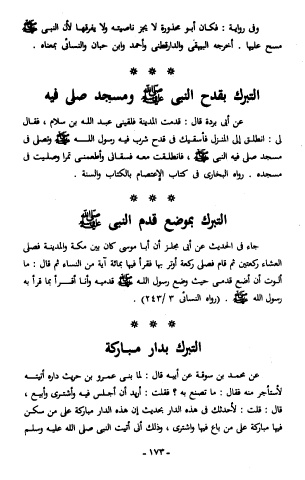 وفى رواية : فكان أبو محذورة لا يجز ناصيته ولا يفرقها لأن النبى ﷺ
مسح عليها . أخرجه البيهقى والدارقطنى وأحمد وابن حبان والنسائى بمعناه .
* * *
التبرك بقدح النبى ﷺ ومسجد صلى فيه
عن أبى بردة قال : قدمت المدينة فلقينى عبد الله بن سلام ، فقال
لى : انطلق إلى المنزل فأسقيك فى قدح شرب فيه رسول الله ﷺ وتصلى فى
مسجد صلى فيه النبى ﷺ ، فانطلقت معه فسقانى وأطعمنى تمرا وصليت فى
مسجده . رواه البخارى فى كتاب الإعتصام بالكتاب والسنة .
* * *
التبرك بموضع قدم النبى ﷺ
جاء فى الحديث عن أبى مجلز أن أبا موسى كان بين مكة والمدينة فصلى
العشاء ركعتين ثم قام فصلى ركعة أوتر بها فقرأ فيها بمائة آية من النساء ثم قال : ما
ألوت أن أضع قدمى حيث وضع رسول الله ﷺ قدميه وأنا أقرأ بما قرأ به
رسول الله ﷺ . (رواه النسائى ٣/ ٢٤٣) .
* * *
التبرك بدار مباركة
عن محمد بن سوقة عن أبيه قال : لما بنى عمرو بن حريث داره أتيته
لأستأجر منه فقال : ما تصنع به ؟ فقلت : أريد أن أجلس فيه وأشترى وأبيع ،
قال : قلت : لأحدثك فى هذه الدار بحديث إن هذه الدار مباركة على من سكن
فيها مباركة على من باع فيها واشترى ، وذلك أنى أتيت النبى صلى الله عليه وسلم
- ١٧٣ -